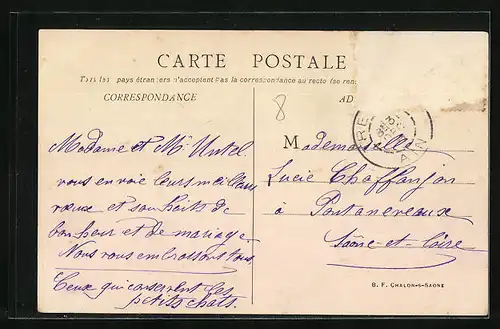 CARTE POSTALE
Tous les pays étrangers n'acceptent pas la correspondance au recto (se ren
CORRESPONDANCE
AD
8
RE
AIN
Madame et Mr Untel
vous envoie leurs meilleurs
vœux et souhaits de
bonheur et de mariage.
Nous vous embrassons tous
Ceux qui conservent les
petits chats.
Mademoiselle
Lucie Chaffanjon
à Pontanevaux
Saône-et-Loire
B. F. CHALON-S-SAONE